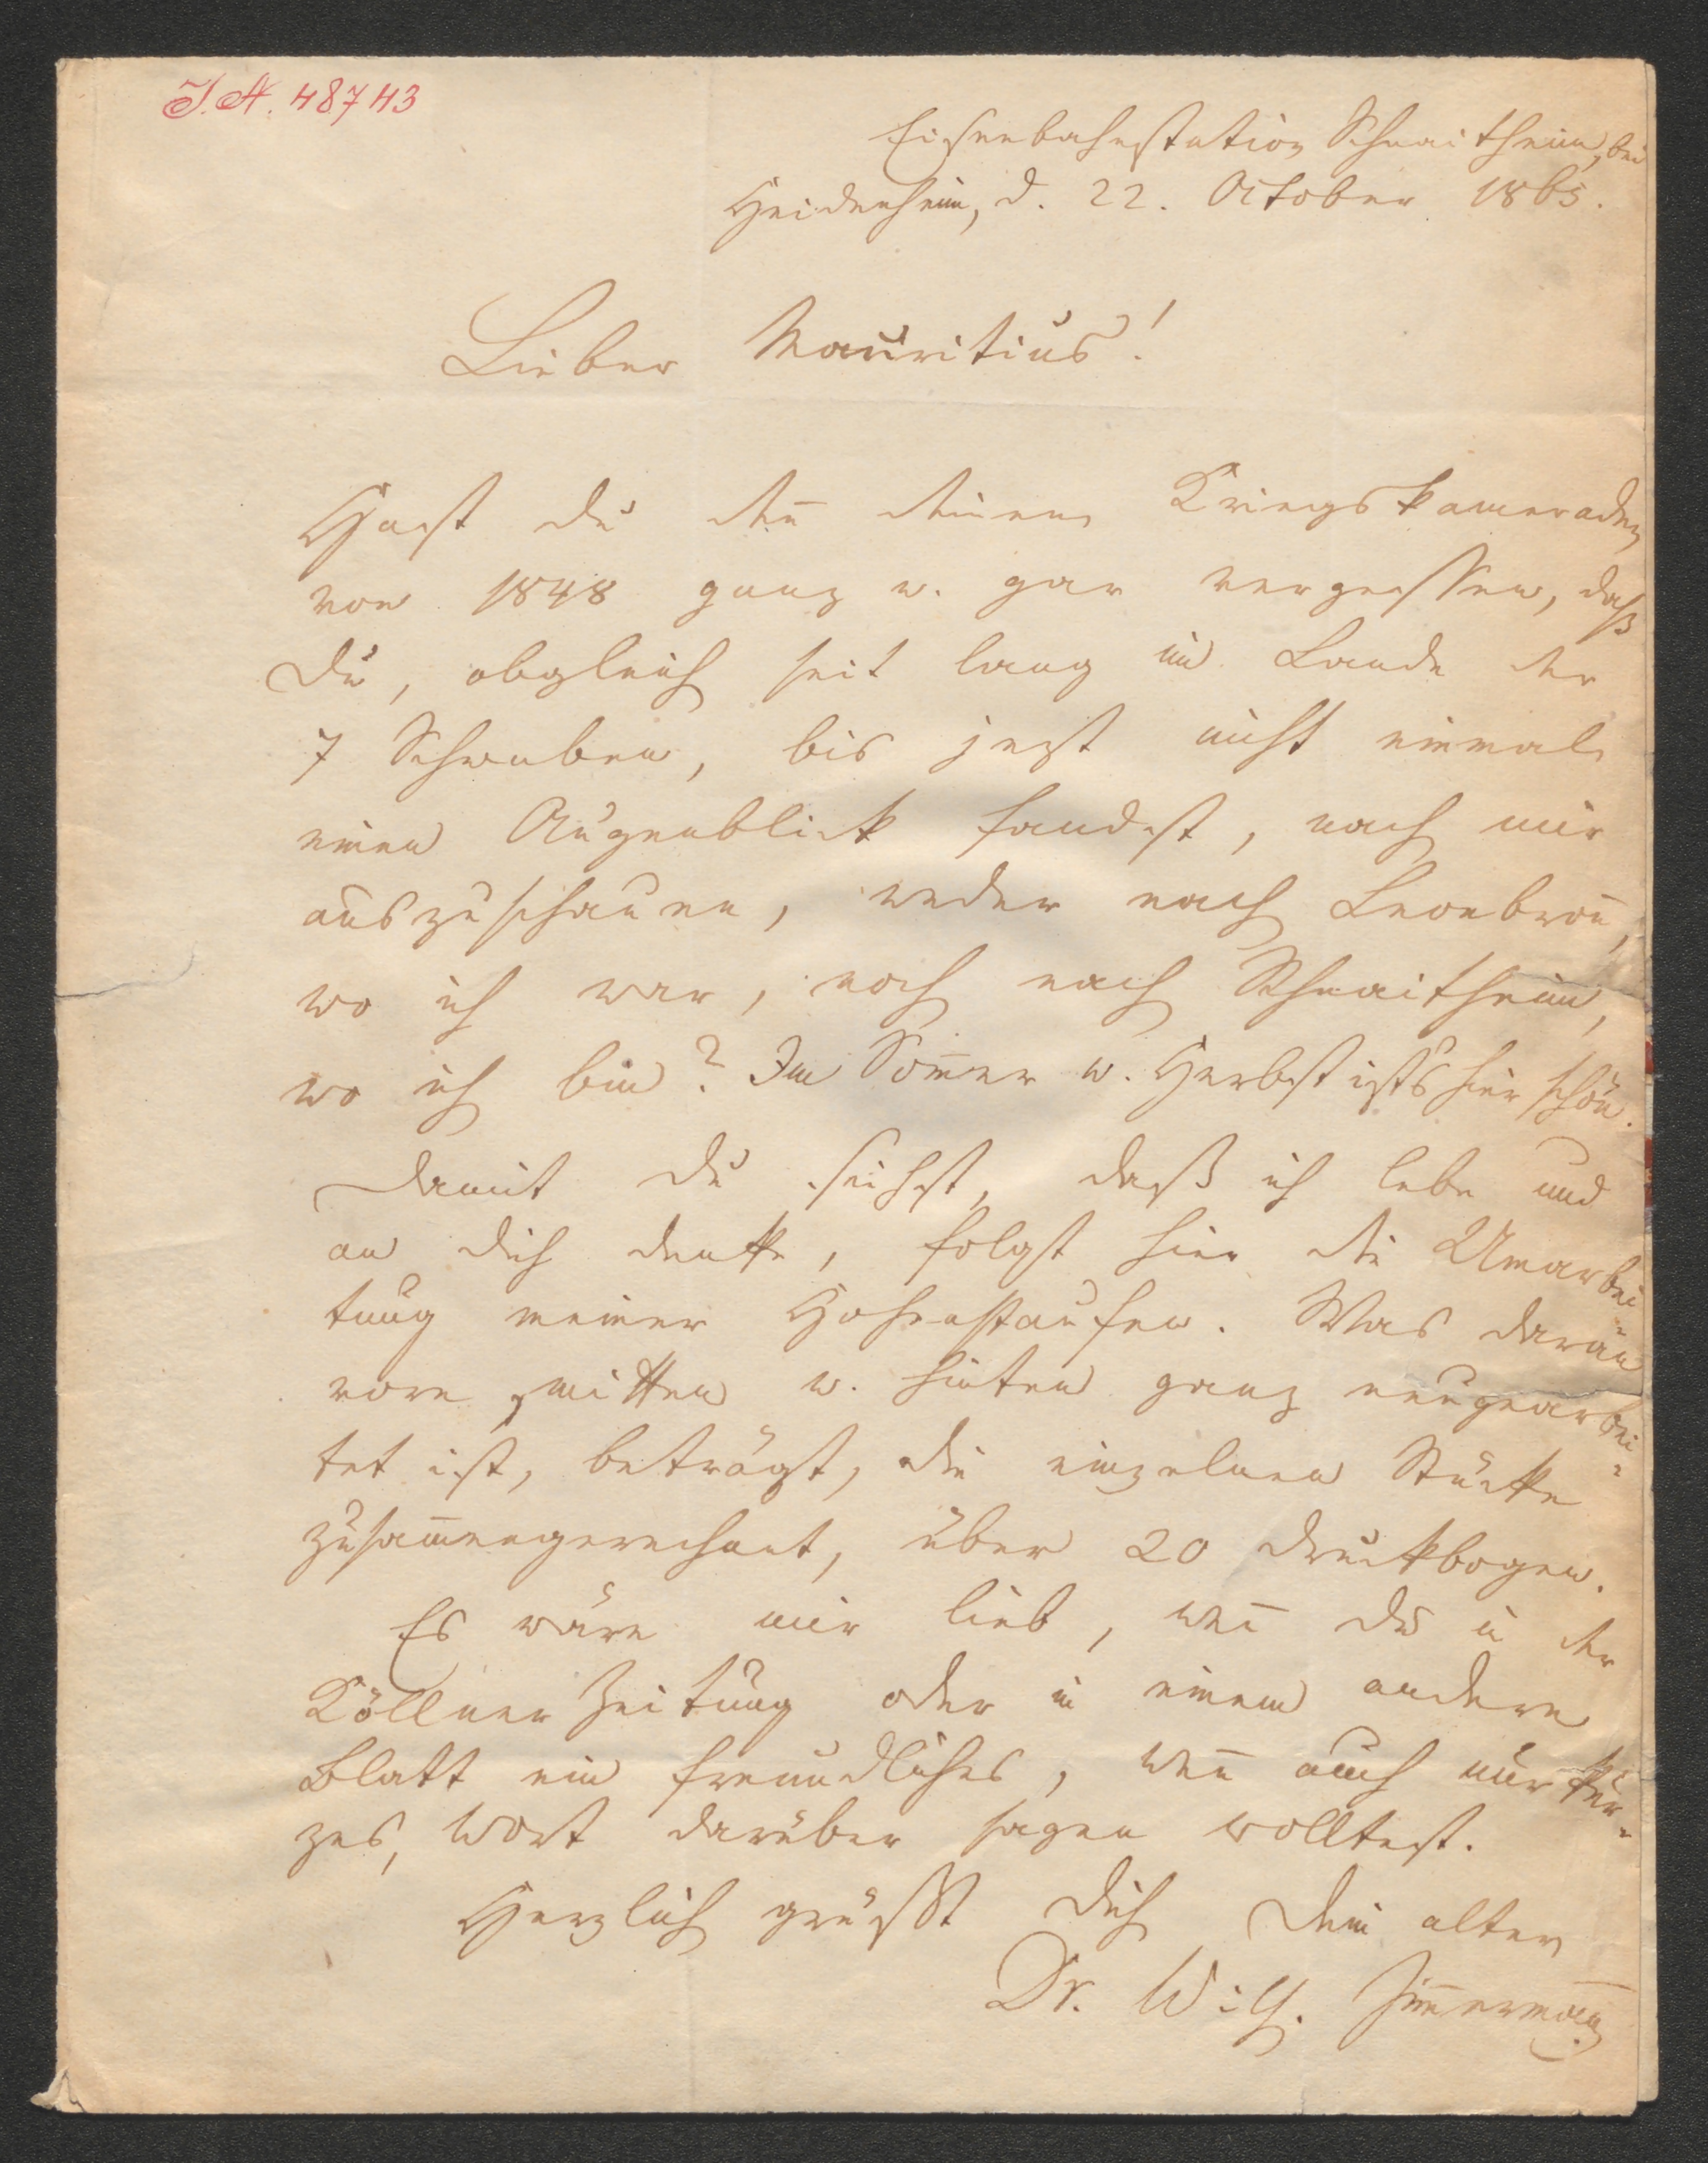 I.N. 48743
Eisenbahnstation Schnaitheim, bei
Heidenheim, d. 22. October 1865.
Lieber Mauritius!
Hast du den̄ deinen Kriegskameraden
von 1848 ganz u. gar vergessen, daß
Du, obgleich seit lang im Lande der
7 Schwaben, bis jezt nicht einmal
einen Augenblick fandest, nach mir
auszuschauen, weder nach Leonbron̄,
wo ich war, noch nach Schnaitheim,
wo ich bin? Im Som̄er u. Herbst ists hier schön.
Damit du siehst, daß ich lebe und
an dich denke, folgt hier die Umarbei-
tung meiner Hohenstaufen. Was daran
vorn, mitten u. hinten ganz neugearbei-
tet ist, beträgt, die einzelnen Stücke
zusam̄engerechnet, über 20 Druckbogen.
Es wäre mir lieb, wen̄ du in der
Köllner Zeitung oder in einem andern
Blatt ein freundliches, wen̄ auch nur kur-
zes, Wort darüber sagen wolltest.
Herzlich grüsst dich Dein alter
Dr. Wilh. Zim̄erman̄